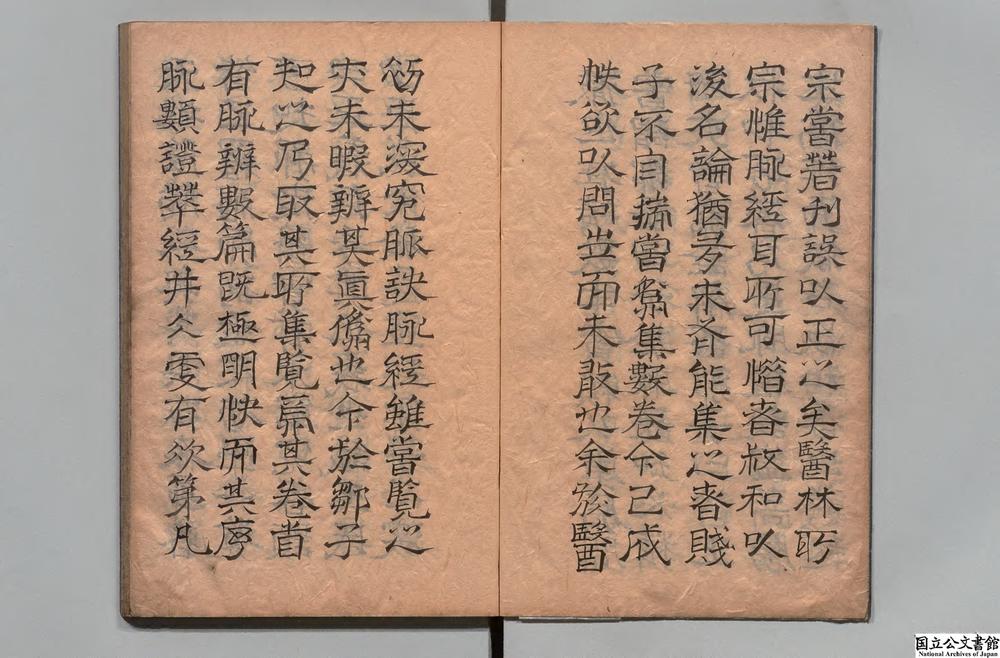 宗嘗著刊誤以正之矣醫林所
宗惟脉經耳所可惜者叔和以
後名論猶多未有能集之者賤
子不自揣嘗為集數卷今已成
帙欲以問世而未敢也余於醫
初未深究脈訣脈經雖嘗覽之
亦未暇辨其眞僞也今於鄒子
知之乃取其所集覽焉其卷首
有脉辨數篇既極明快而其序
脉類證萃經井々有次第凡
国立公文書館
National Archives of Japan